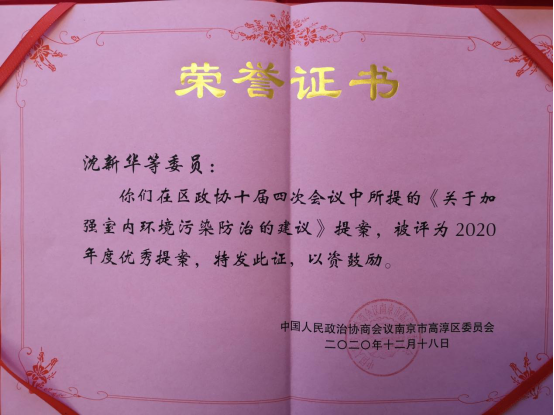 荣誉证书
沈新华等委员：
你们在区政协十届四次会议中所提的《关于加
强室内环境污染防治的建议》提案，被评为2020
年度优秀提案，特发此证，以资鼓励。
中国人民政治协商会议南京市高淳区委员会
二〇二〇年十二月十八日